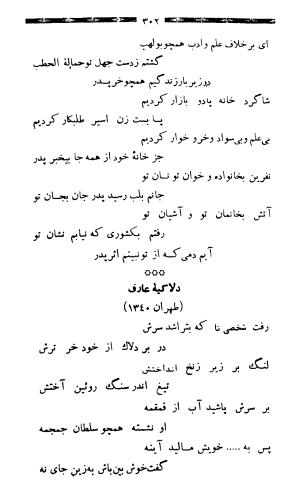 ۳۰۲
ای بر خلاف علم و ادب همچو بولهب
گشتم زدست جهل تو حمالة الحطب
در زیر بار زندگیم همچو خر پدر
شاگرد خانه پادو بازار کردیم
پا بست زن اسیر طلبکار کردیم
بی علم و بی سواد و خر و خوار کردیم
جز خانهٔ خود از همه جا بیخبر پدر
نفرین بخانواده و خوان تو نان تو
جانم بلب رسید پدر جان بجان تو
آتش بخانمان تو و آشیان تو
رفتم بکشوری که نیابم نشان تو
آیم دمی که از تو نبینم اثر پدر
○○○
دلاکیهٔ عارف
(طهران ۱۳۴۰)
رفت شخصی تا که بتراشد سرش
در بر دلاک از خود خر ترش
لنگ بر زیر زنخ انداختش
تیغ اندر سنگ روئین آختش
بر سرش پاشید آب از قمقمه
او نشسته همچو سلطان جمجمه
پس به ..... خویش مالید آینه
گفت خوش بین باش به زین جای نه